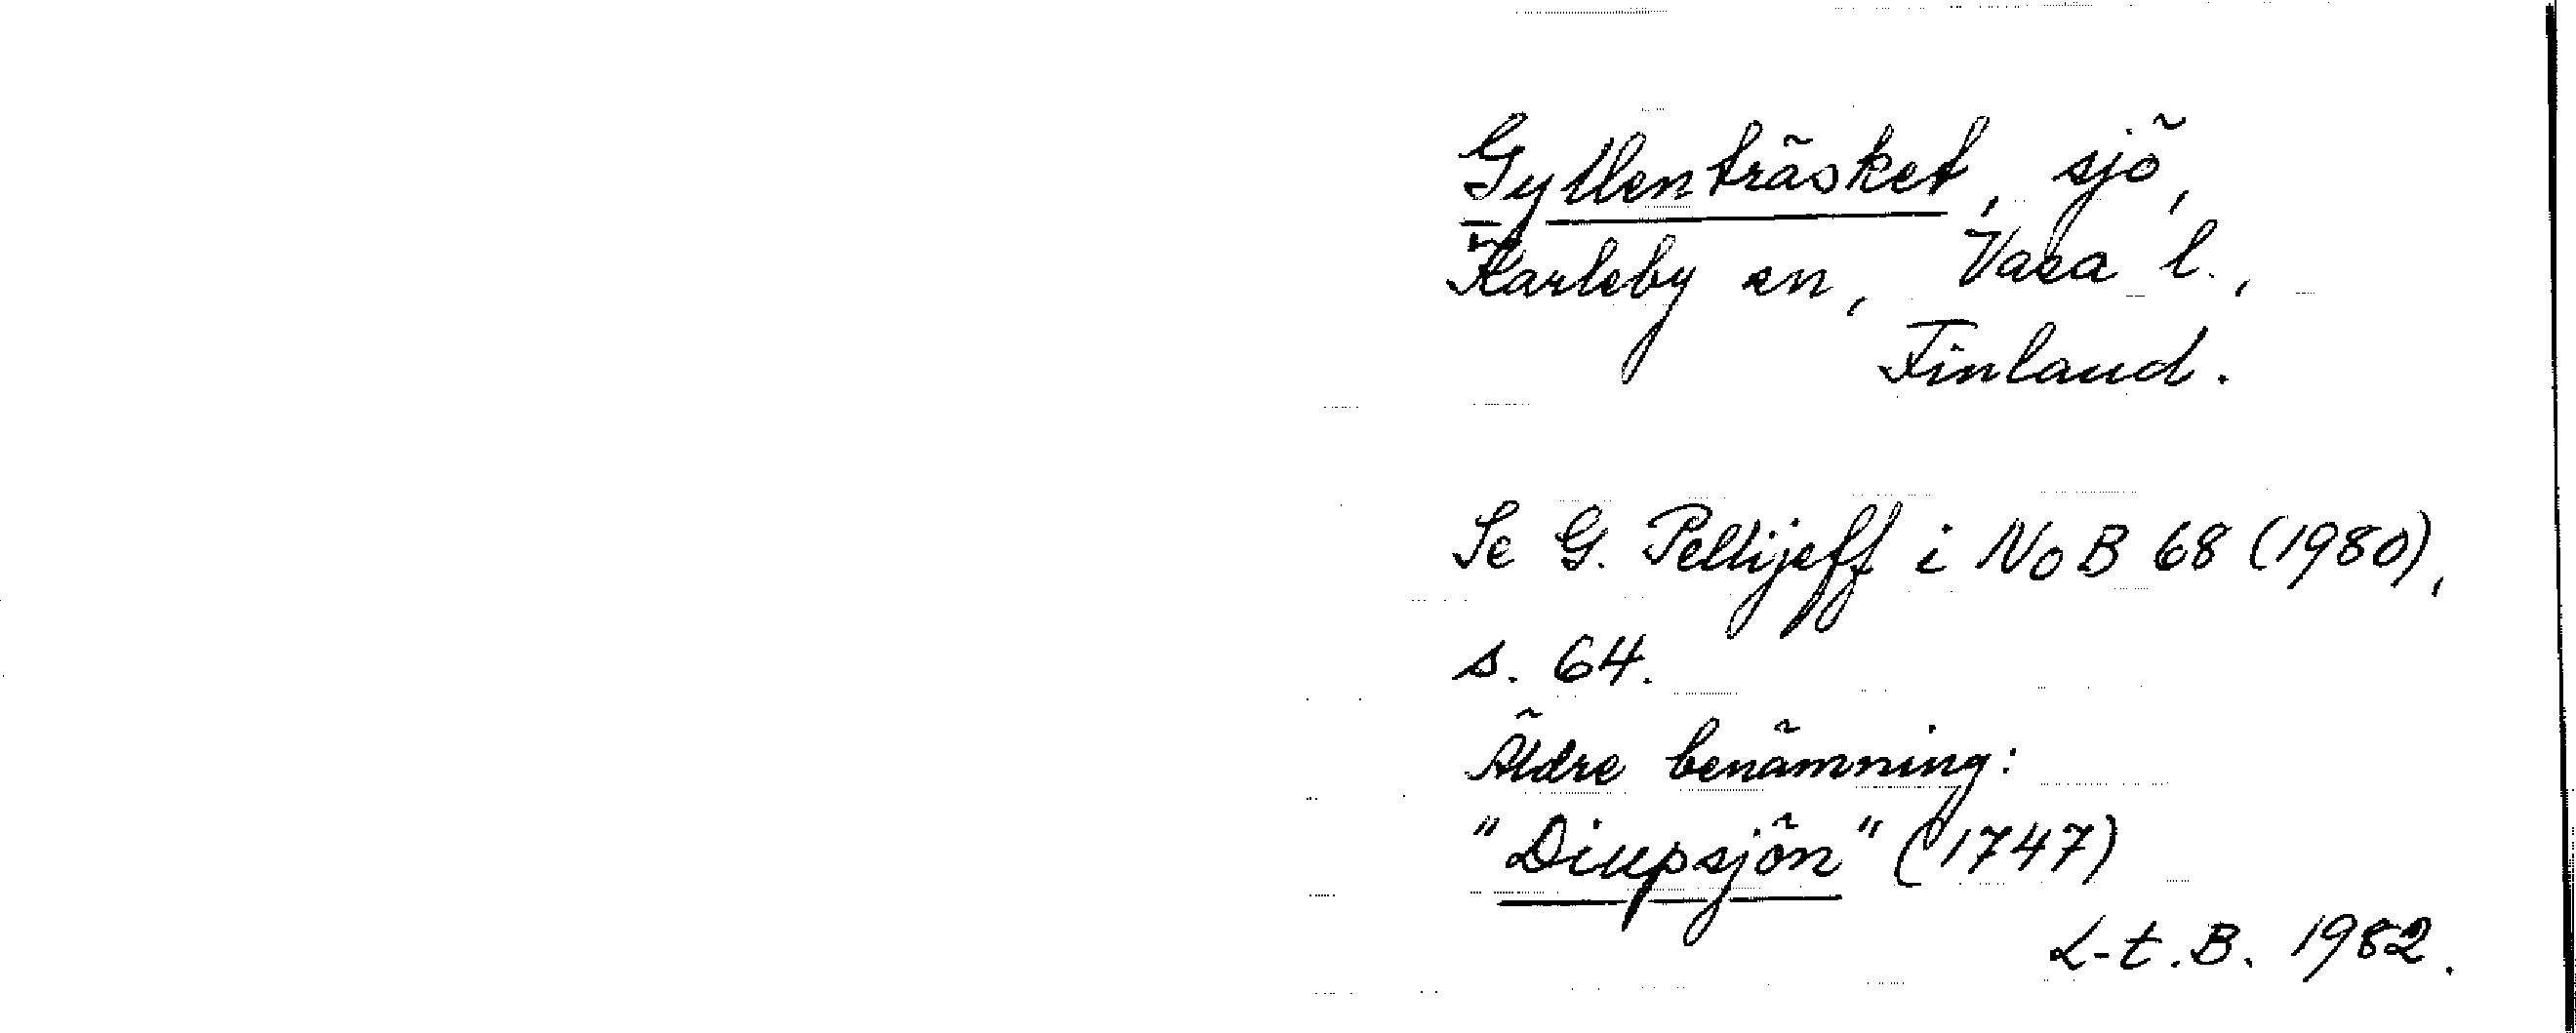 Gyllenträsket, sjö,
Karleby sn, Vasa l.,
Finland.
Se G. Pellijeff i NoB 68 (1980),
s. 64.
Äldre benämning:
"Diupsjön" (1747)
L-t.B. 1982.